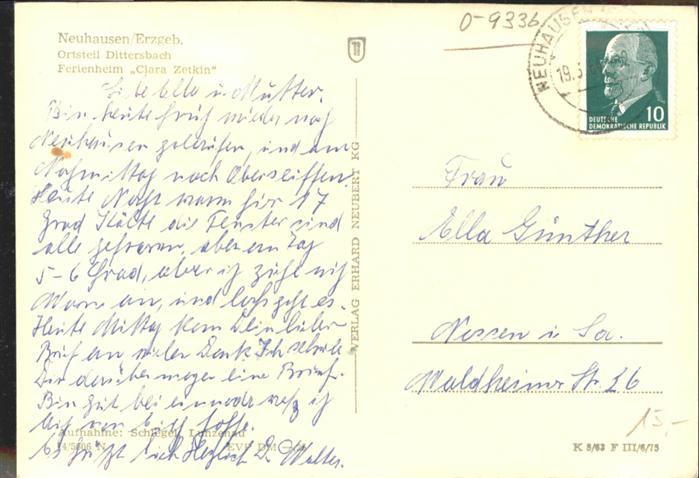 Neuhausen/Erzgeb.
Ortsteil Dittersbach
Ferienheim „Clara Zetkin“
Liebe Ella u. Mutter.
Bin heute früh wieder nach
Neuhausen gelaufen, und am
Nachmittag nach Oberseiffen.
Heute Nacht waren hier 17
Grad Kälte die Fenster sind
alle gefroren, aber am Tag
5-6 Grad, aber ich ziehe mich
Warm an, und los geht es.
Heute Mittag kam Dein lieber
Brief an vielen Dank Ich schreibe
Dir darüber morgen einen Brief.
Bin gut bei
hoffe.
Es grüßt Dich Herzlich D. Walter.
Aufnahme: Schlegel, Lunzenau
14/5606 N EVP DM
VERLAG ERHARD NEUBERT KG
O-9336
NEUHAUSEN
19.3.
10
DEUTSCHE
DEMOKRATISCHE REPUBLIK
Frau
Ella Günther
Nossen i. Sa.
Waldheimer Str. 26
15,-
K 5/63 F III/6/75